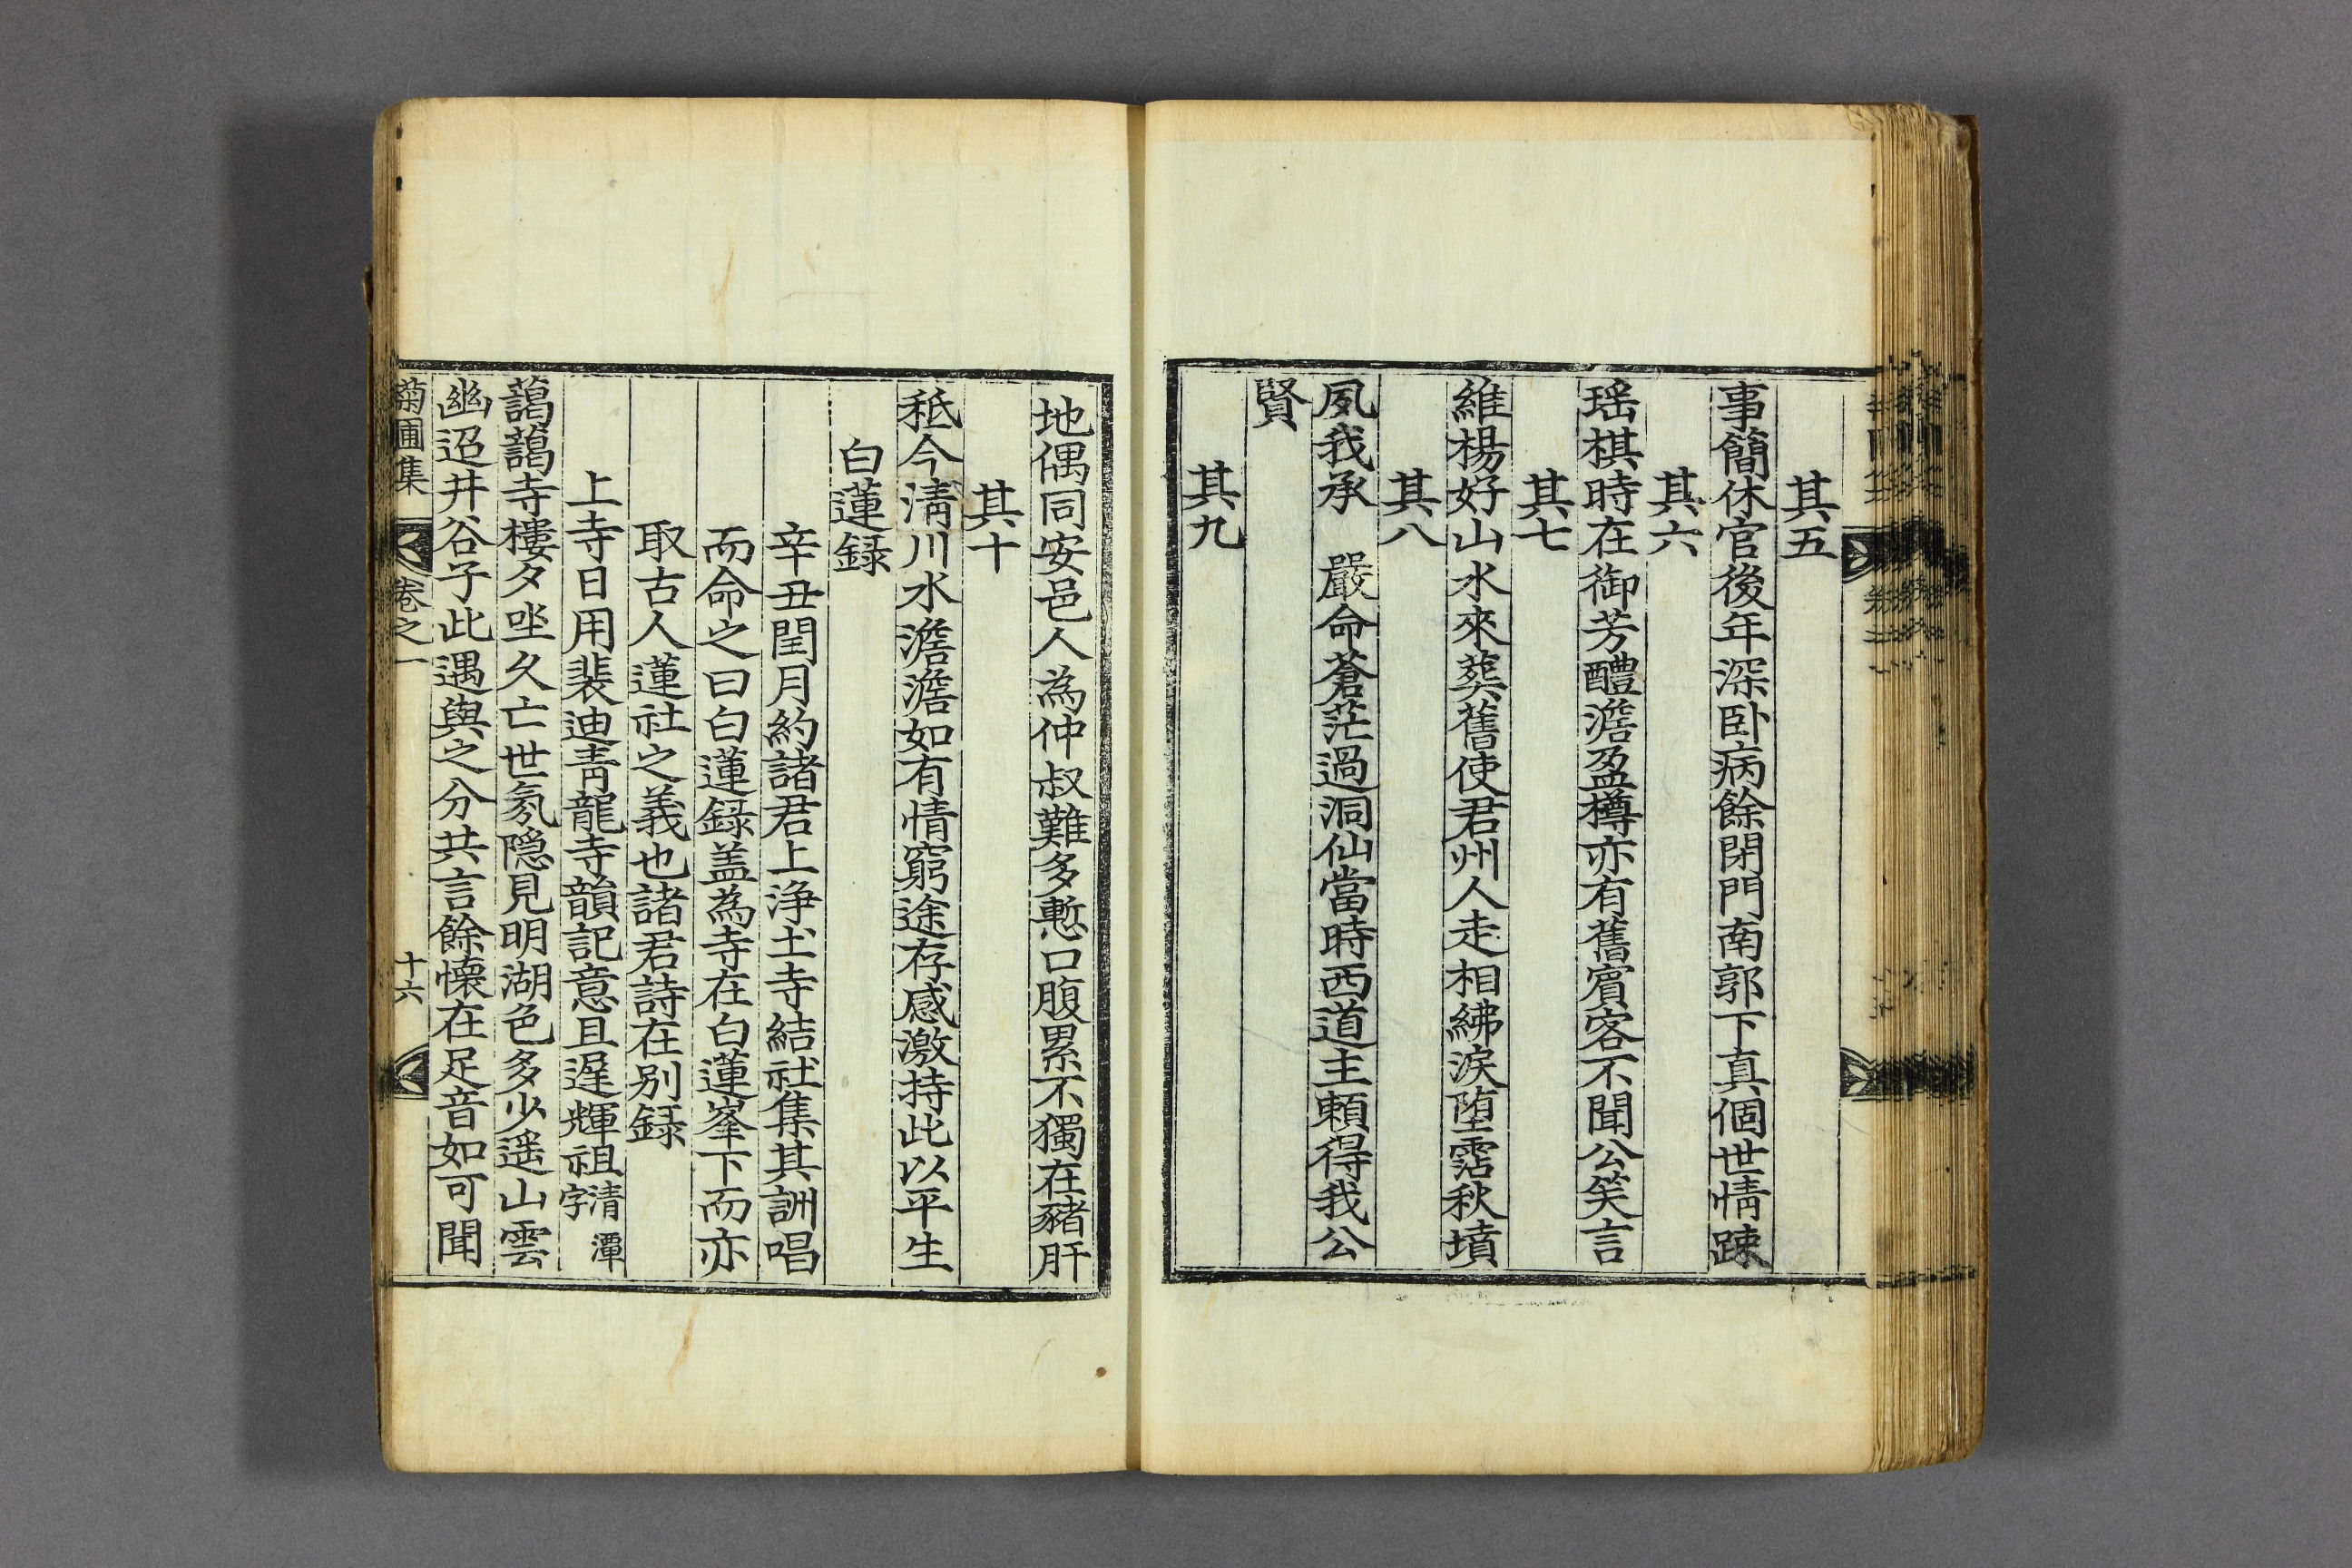 其五
事簡休官後年深卧病餘閉門南郭下真個世情踈
其六
瑶棋時在御芳醴澹盈樽亦有舊賓客不聞公笑言
其七
維楊好山水來葬舊使君州人走相紼淚堕霑秋墳
其八
夙我承　嚴命蒼茫過洞仙當時西道主賴得我公
賢
其九
地偶同安邑人為仲叔難多慙口腹累不獨在豬肝
其十
秪今淸川水澹澹如有情窮途存感激持此以平生
白蓮録
辛丑閏月約諸君上浄土寺結社集其詶唱
而命之曰白蓮録盖為寺在白蓮峯下而亦
取古人蓮社之義也諸君詩在别録
上寺日用裴迪靑龍寺韻記意且遟輝祖清潭字
藹藹寺樓夕坐久亡世氛隠見明湖色多少遥山雲
幽迢井谷子此遇與之分共言餘懷在足音如可聞
菊圃集　卷之一　十六